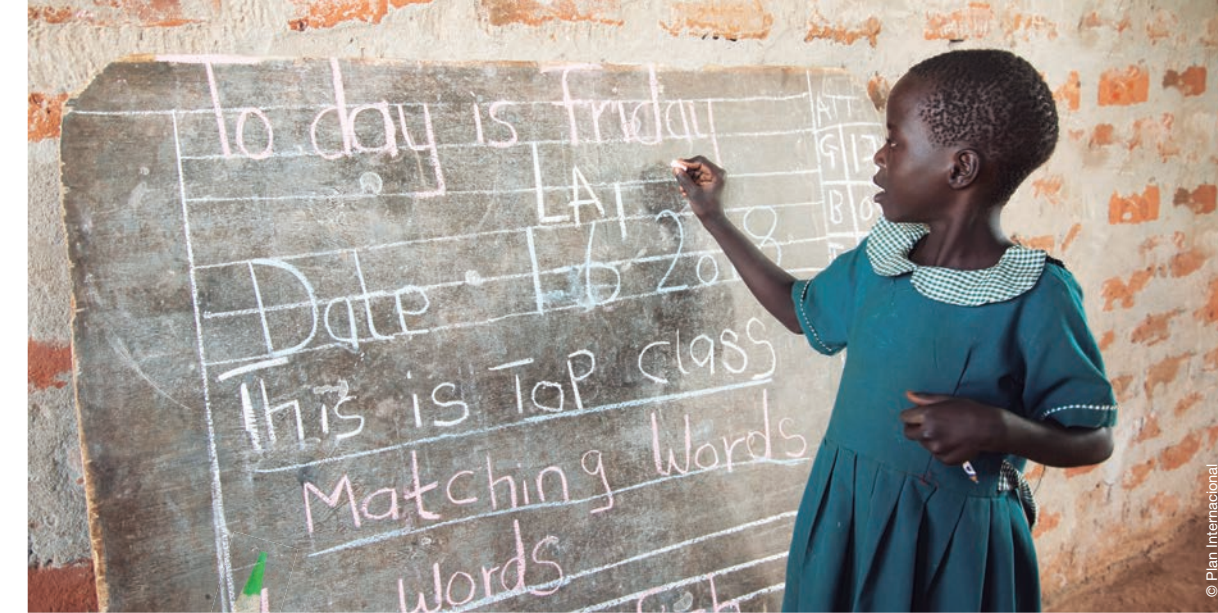 To day is friday
LA1
Date - L6 2018
This is Top class
Matching Words
words
G
B
© Plan Internacional